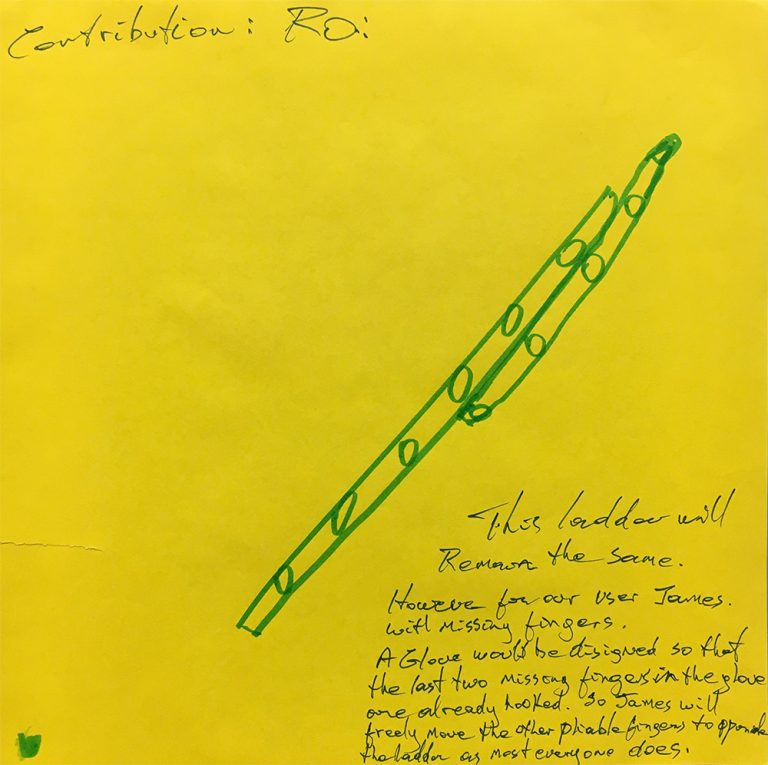 Contribution: RO:
This ladder will
Remain the same.
However for our user James.
with missing fingers.
A Glove would be disigned so that
the last two missing fingers in the glove
are already hooked. So James will
freely move the other pliable fingers to opperate
the ladder as most everyone does.